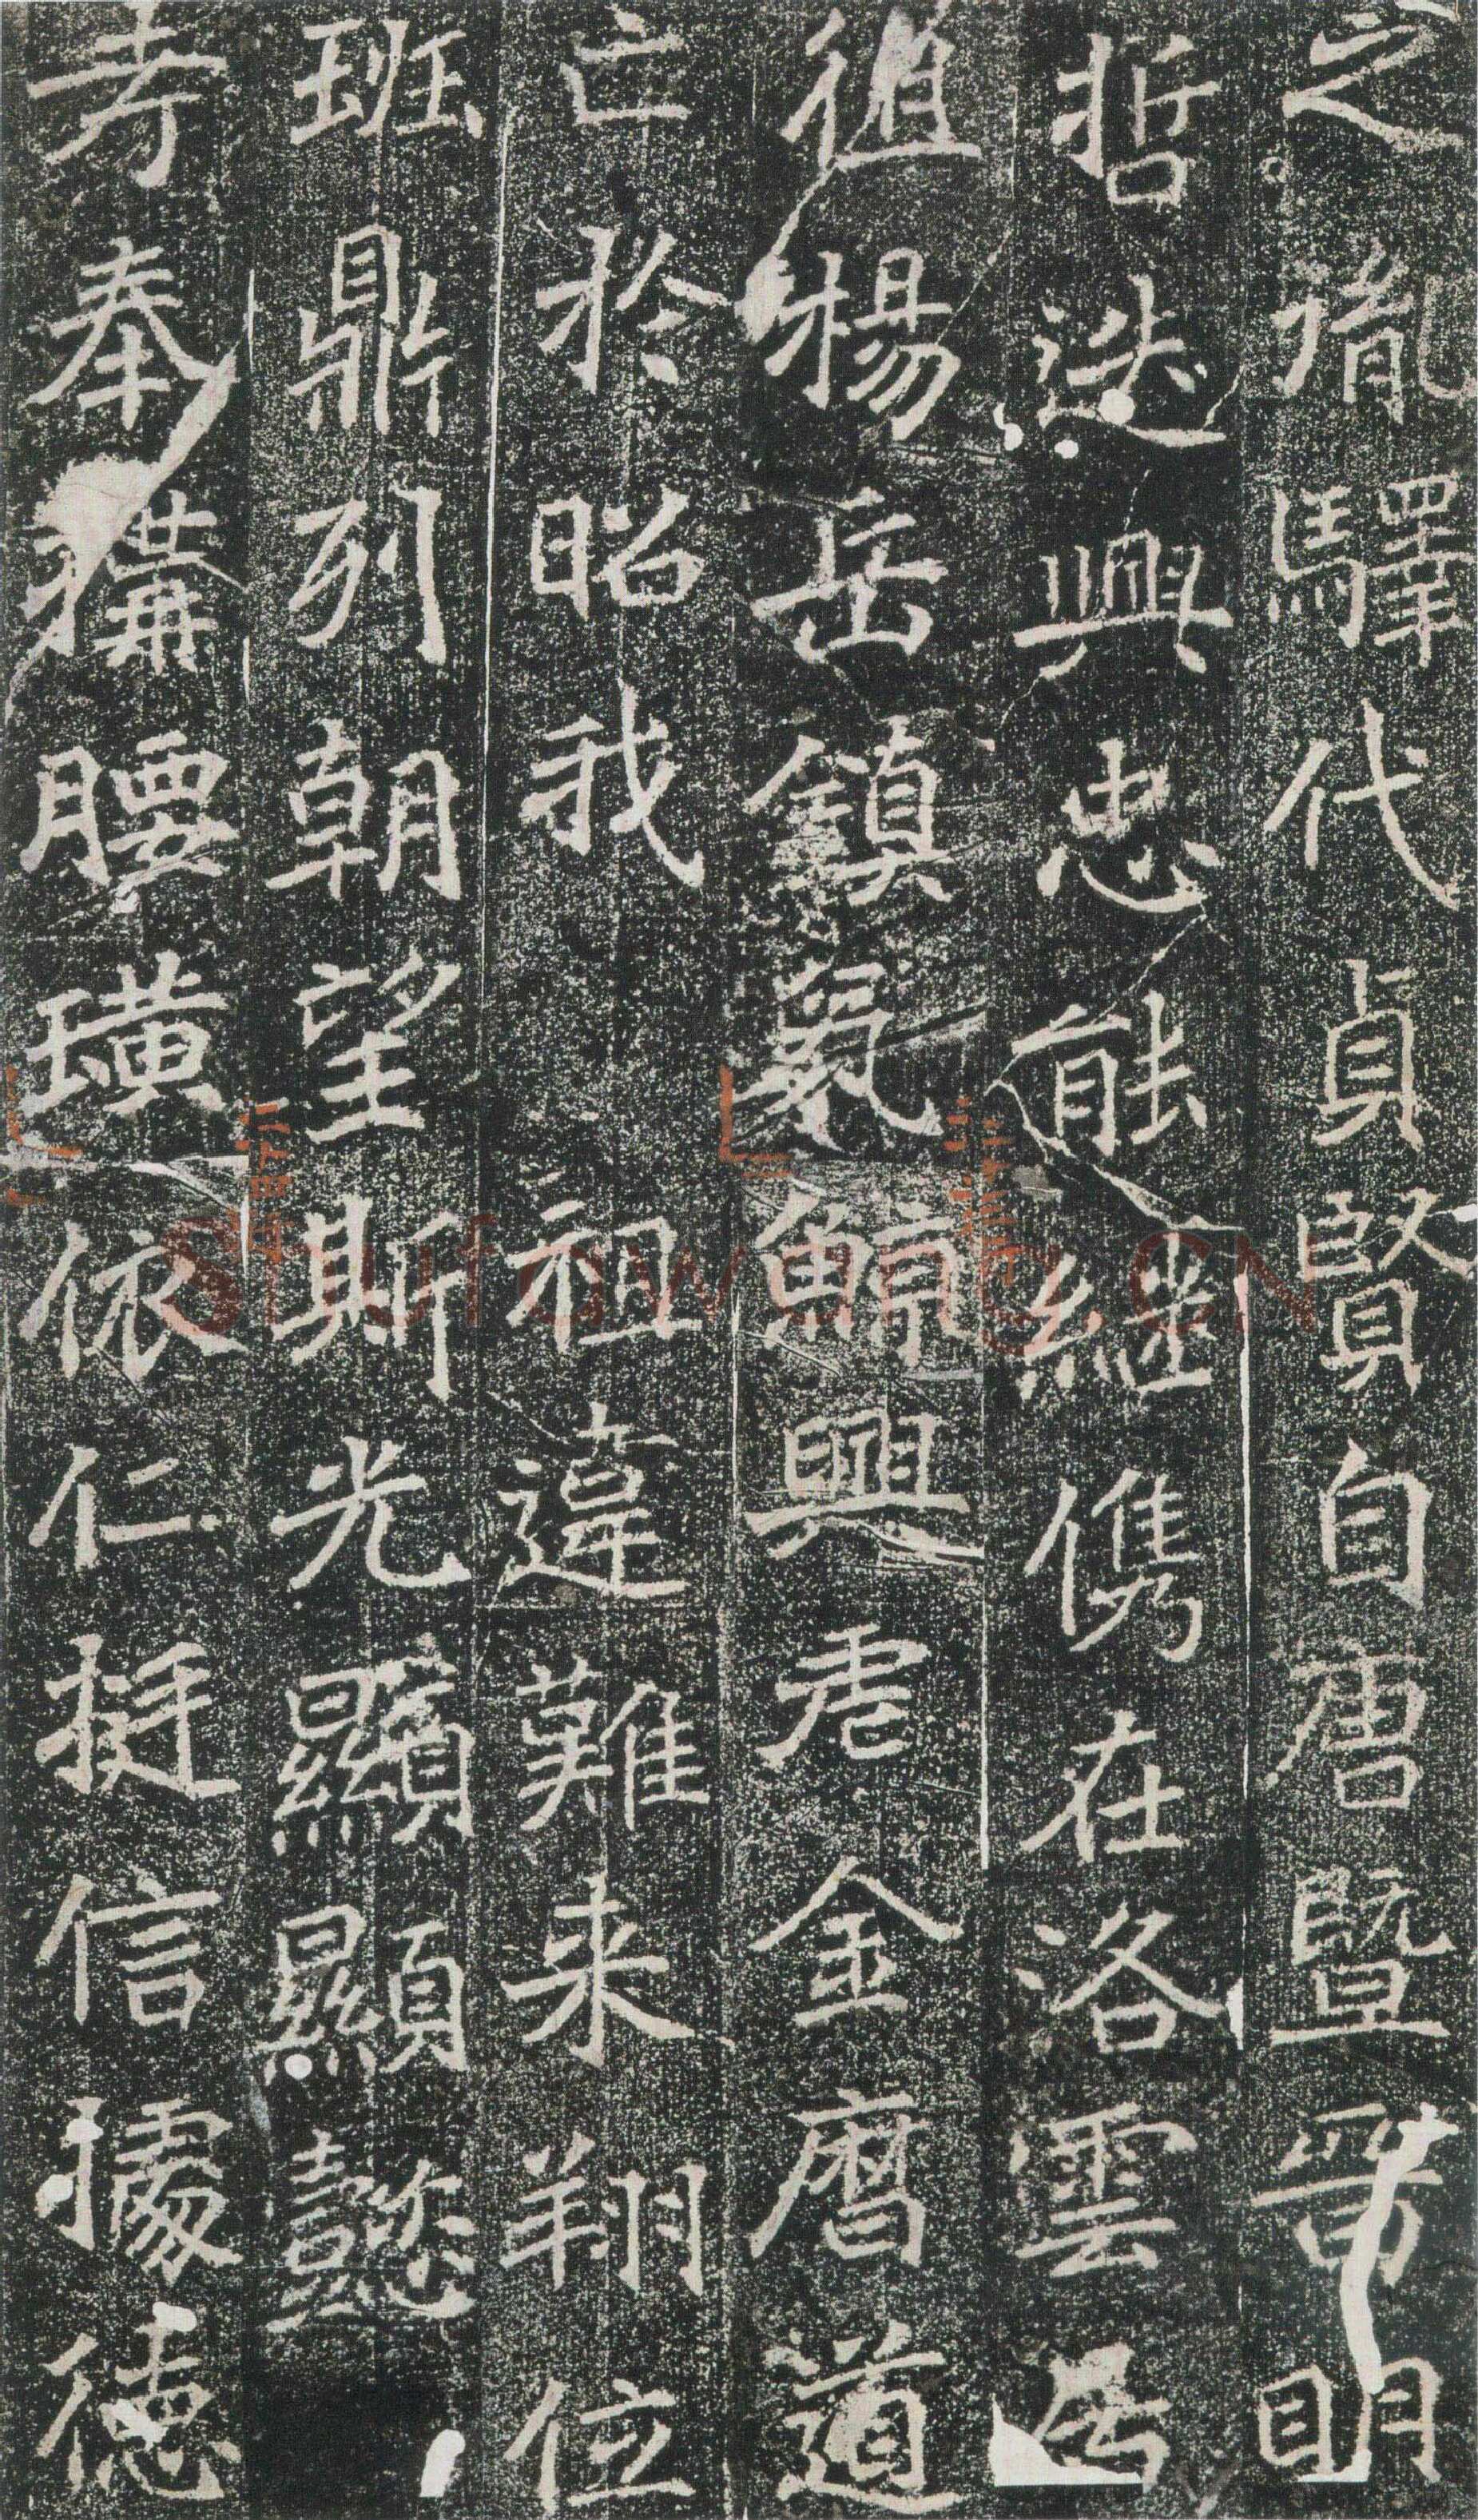 之胤驛代貞賢自唐暨晉明
哲迭興忠能継儁在洛雲
徂楊岳鎮鯨興虐金曆道
亡於昭我 祖違難来翔位
班鼎列朝望斯光顯顯懿
考奉構腰璜依仁挺信據德
Shufawang.CN